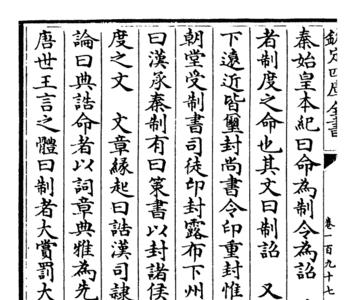 欽定四庫全書
卷一百九十七
秦始皇本紀曰命為制令為詔
者制度之命也其文曰制詔 又
下遠近皆璽封尚書令印重封惟
朝堂受制書司徒印封露布下州
曰漢承秦制有曰策書以封諸侯
度之文 文章緣起曰誥漢司隸
論曰典誥命者以詞章典雅為先
唐世王言之體曰制者大賞罰大